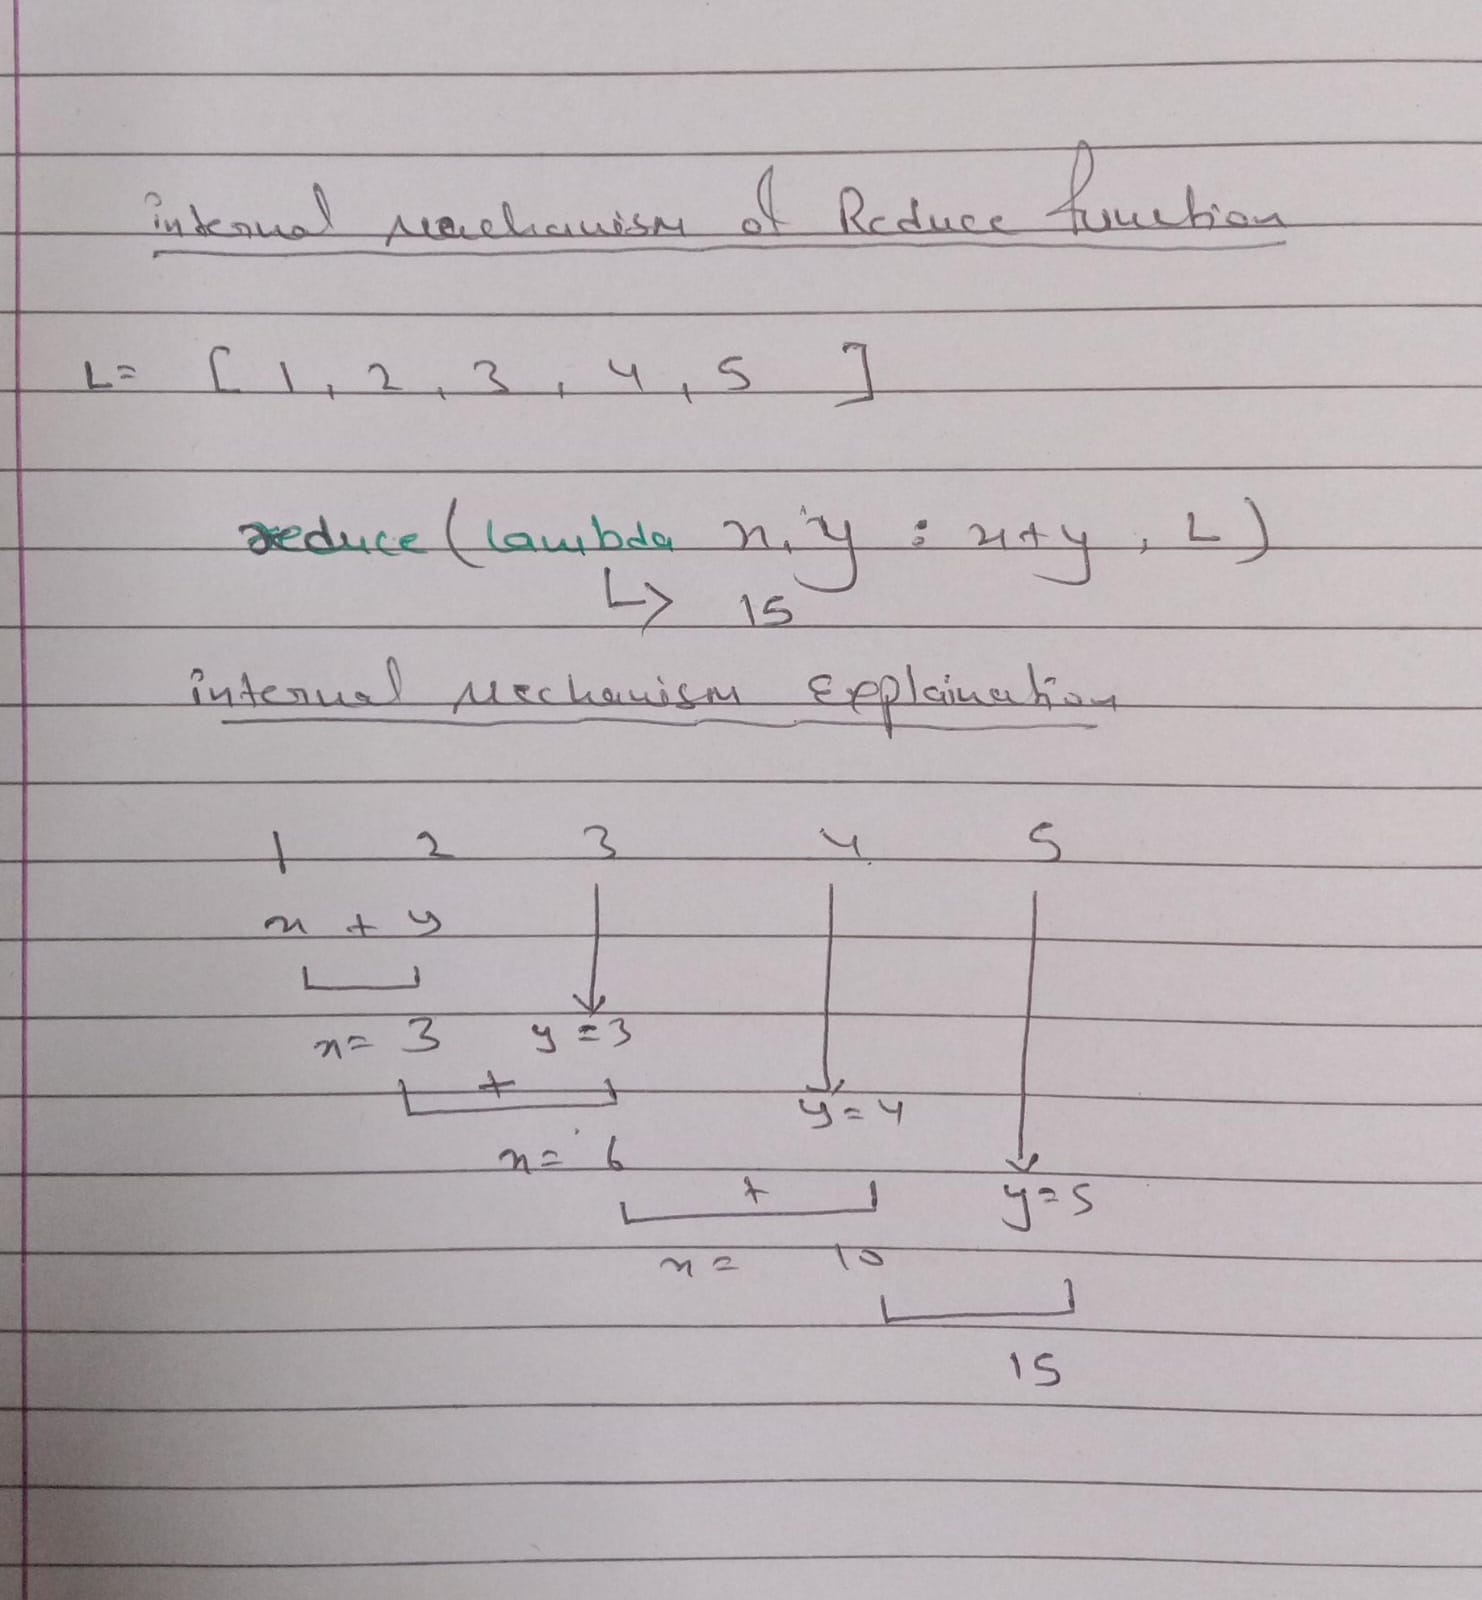 internal mechanism of Reduce function
L= [ 1, 2, 3, 4, 5 ]
reduce ( lambda x, y : x+y , L )
↳ 15
internal Mechanism Explaination
1 2 3 4 5
x + y
x= 3 y=3
+
y=4
x= 6
+
y=5
x= 10
15